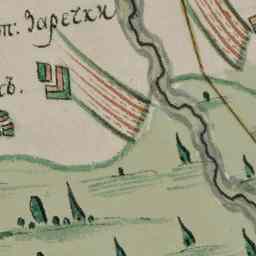 п: Заречки
съ.